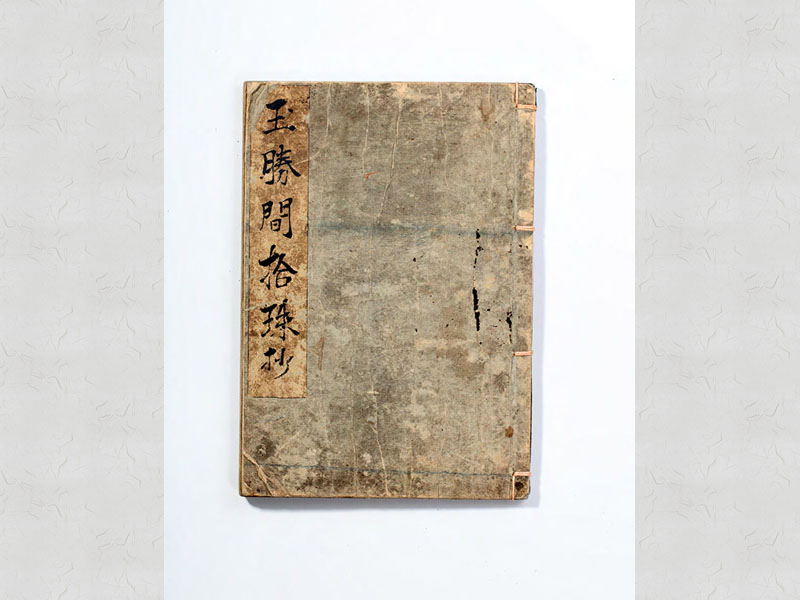 玉勝間拾珠抄